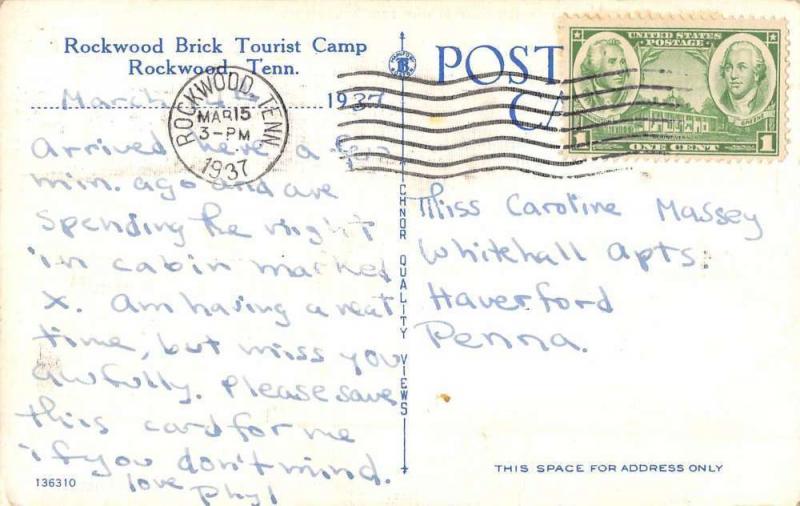 Rockwood Brick Tourist Camp
Rockwood, Tenn.
March 1937
Arrived here a few
min. ago and are
spending the night
in cabin marked
X. Am having a neat
time, but miss you
awfully. Please save
this card for me
if you don't mind.
love
Phyl
136310
ROCKWOOD, TENN.
MAR 15
3-PM
1937
CHNOR QUALITY VIEWS
POST
CA
UNITED STATES
POSTAGE
GREENE
1 ONE CENT 1
Miss Caroline Massey
Whitehall Apts.
Haverford
Penna.
THIS SPACE FOR ADDRESS ONLY